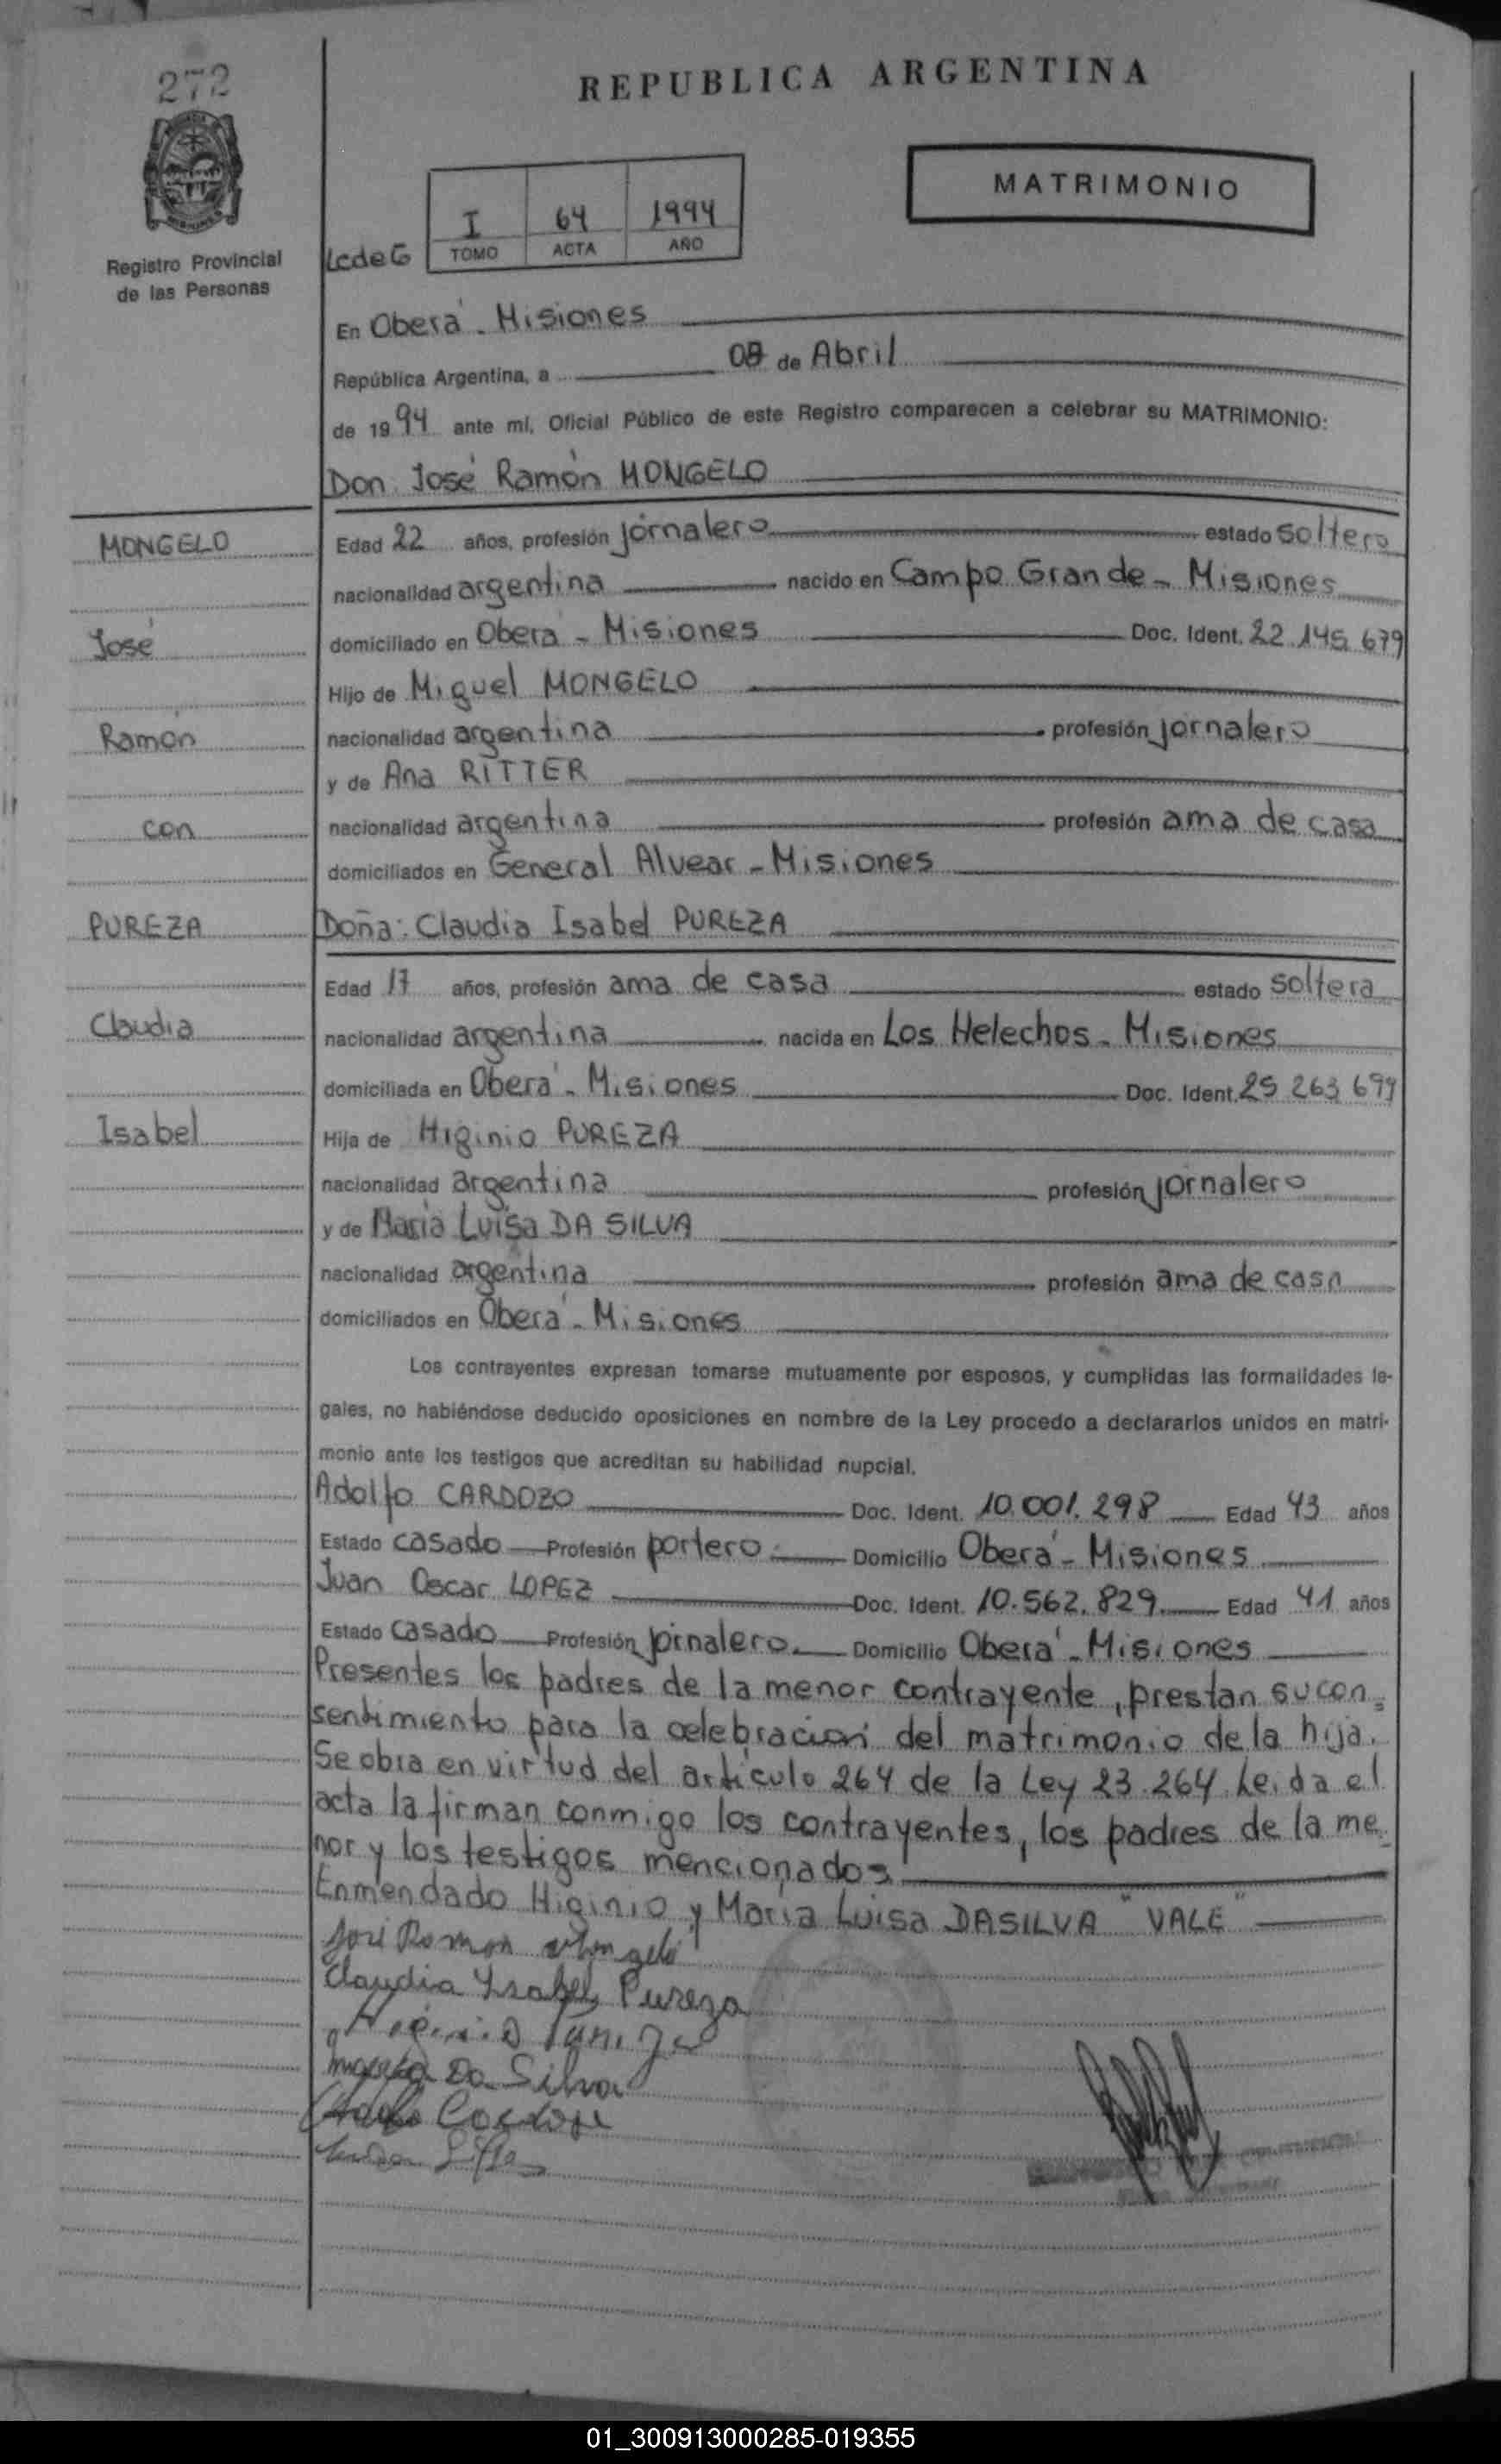 272
REPUBLICA ARGENTINA
MATRIMONIO
I 64 1994
LcdeG TOMO ACTA AÑO
Registro Provincial
de las Personas
En Oberá - Misiones
República Argentina, a 08 de Abril
de 1994 ante mí, Oficial Público de este Registro comparecen a celebrar su MATRIMONIO:
Don: José Ramón MONGELO
MONGELO
Edad 22 años, profesión jornalero estado soltero
nacionalidad argentina nacido en Campo Grande - Misiones
José
domiciliado en Oberá - Misiones Doc. Ident. 22.145.679
Hijo de Miguel MONGELO
Ramón
nacionalidad argentina profesión jornalero
y de Ana RITTER
con
nacionalidad argentina profesión ama de casa
domiciliados en General Alvear - Misiones
PUREZA
Doña: Claudia Isabel PUREZA
Edad 17 años, profesión ama de casa estado soltera
Claudia
nacionalidad argentina nacida en Los Helechos - Misiones
domiciliada en Oberá - Misiones Doc. Ident. 25 263 699
Isabel
Hija de Higinio PUREZA
nacionalidad argentina profesión jornalero
y de María Luisa DA SILVA
nacionalidad argentina profesión ama de casa
domiciliados en Oberá - Misiones
Los contrayentes expresan tomarse mutuamente por esposos, y cumplidas las formalidades le-
gales, no habiéndose deducido oposiciones en nombre de la Ley procedo a declararlos unidos en matri-
monio ante los testigos que acreditan su habilidad nupcial.
Adolfo CARDOZO Doc. Ident. 10.001.298 Edad 43 años
Estado casado Profesión portero. Domicilio Oberá - Misiones
Juan Oscar LOPEZ Doc. Ident. 10.562.829 Edad 41 años
Estado casado Profesión jornalero. Domicilio Oberá - Misiones
Presentes los padres de la menor contrayente, prestan su con=
sentimiento para la celebración del matrimonio de la hija.
Se obra en virtud del artículo 264 de la Ley 23.264. Leída el
acta la firman conmigo los contrayentes, los padres de la me-
nor y los testigos mencionados
Enmendado Higinio y María Luisa DASILVA "VALE"
José Ramon Mongelo
Claudia Ysabel Pureza
Higinio
Da Silva
Cardozo
01_300913000285-019355